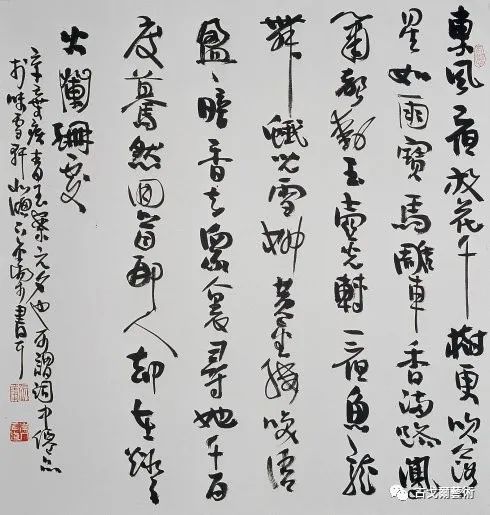 東風夜放花千樹更吹落
星如雨寶馬雕車香滿路鳳
簫聲動玉壺光轉一夜魚龍
舞蛾兒雪柳黃金縷笑語
盈〻暗香去眾裏尋她千百
度驀然回首那人却在燈
火闌珊處
辛棄疾青玉案元夕也可謂詞中僊品
於味雪軒
古戈爾藝術